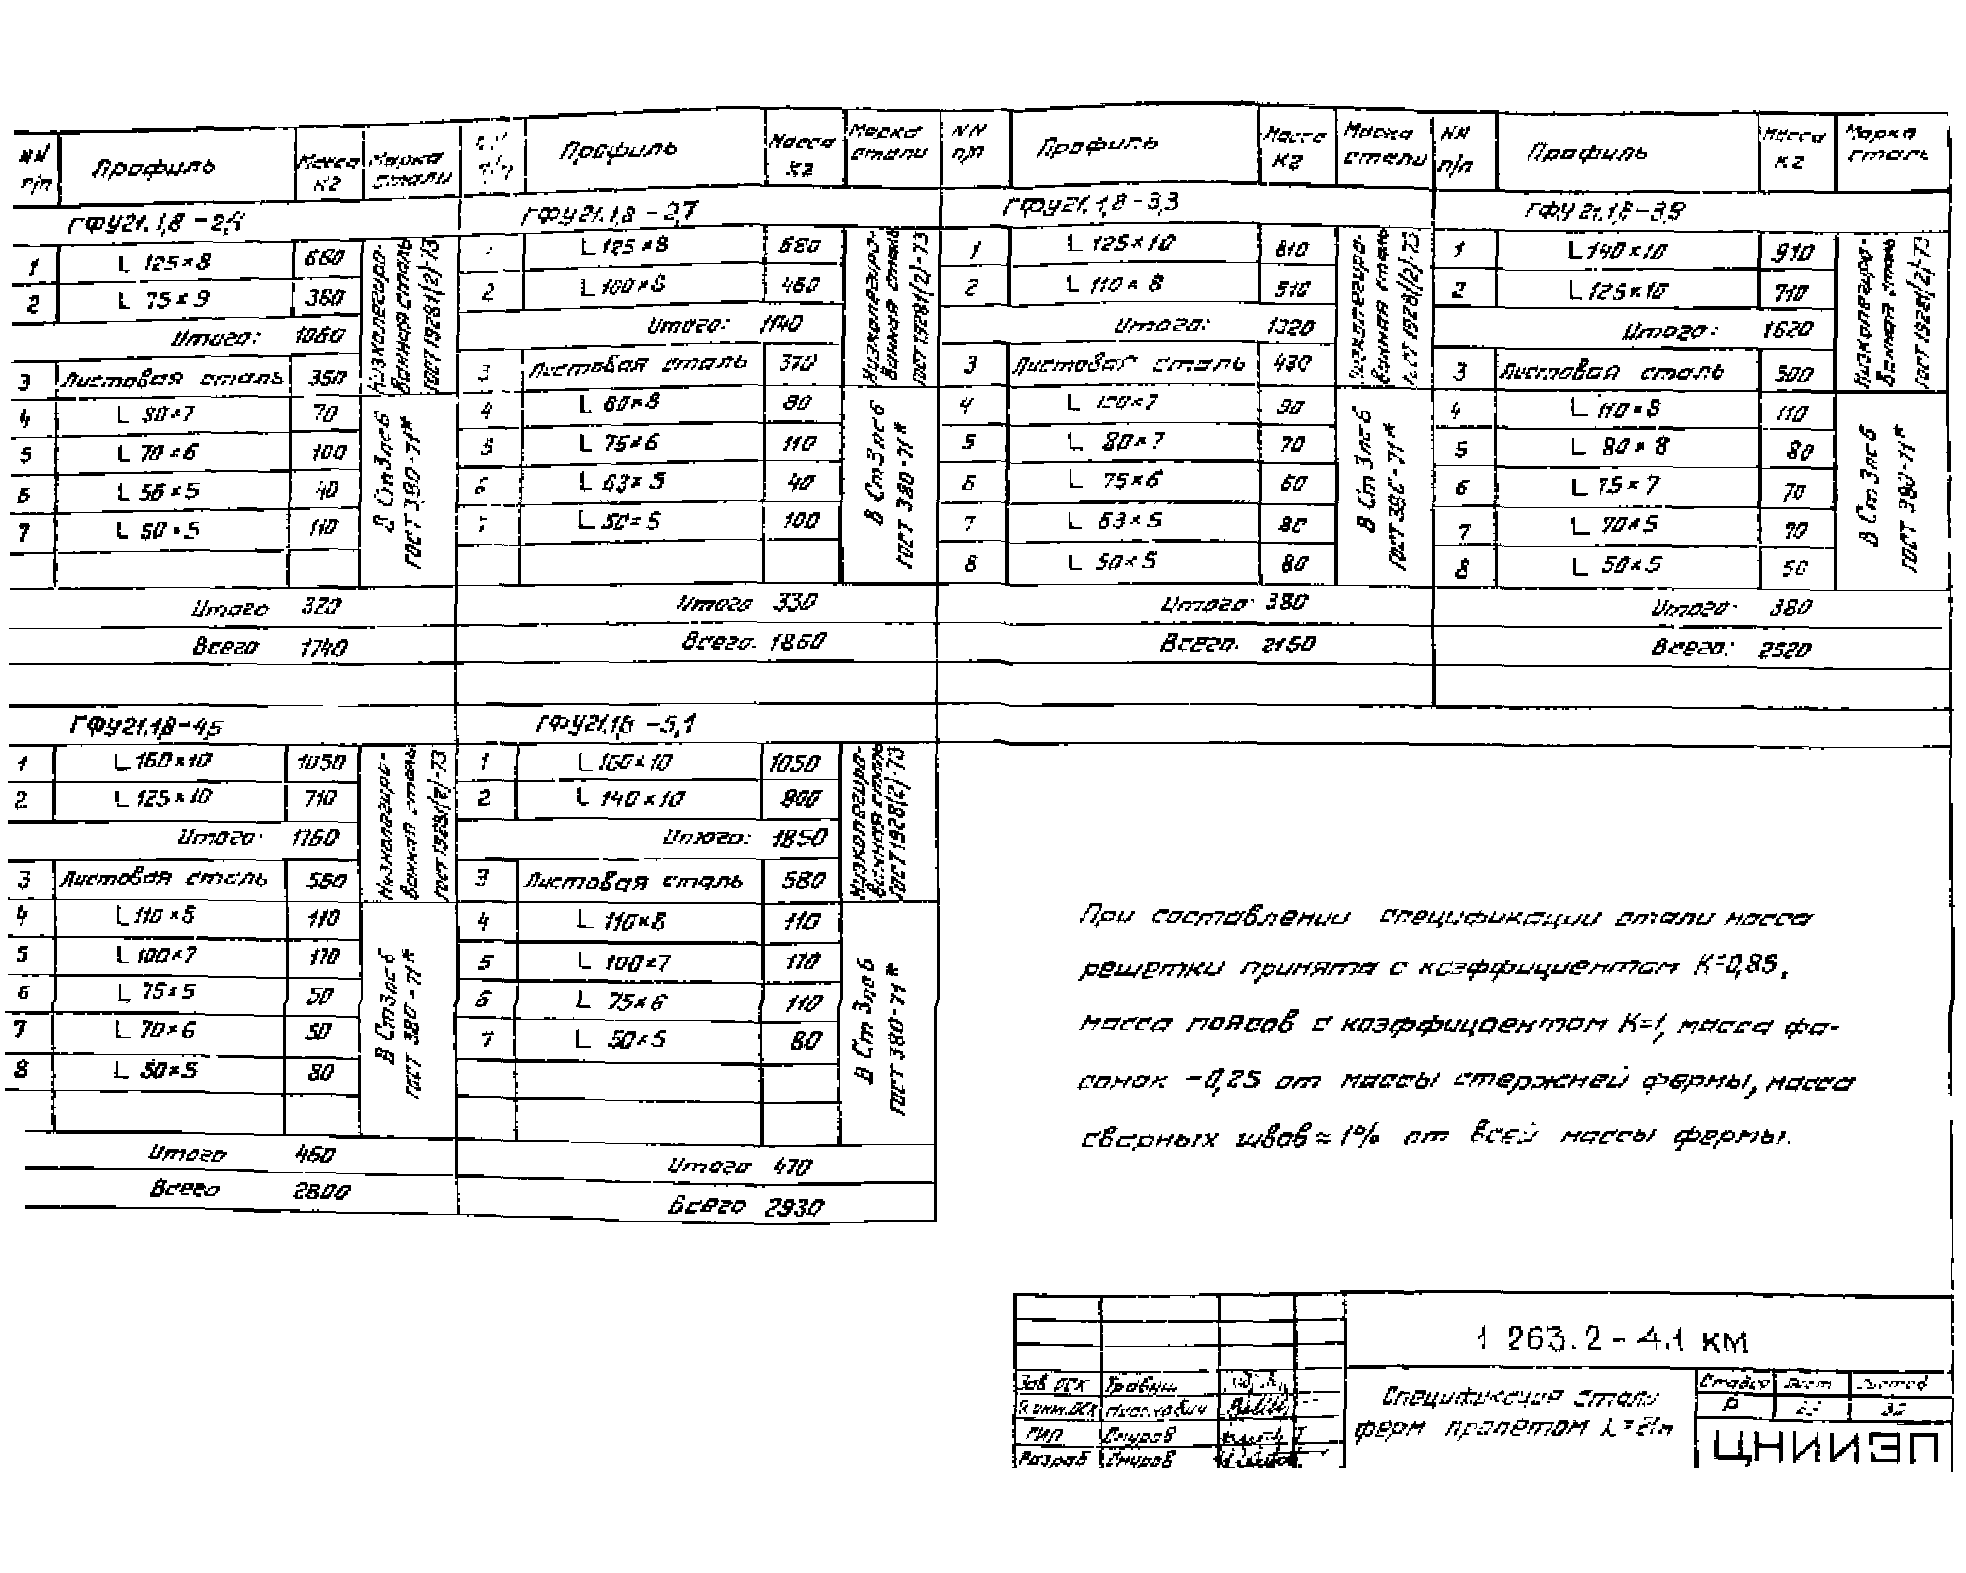 NN п/п Профиль Масса кг Марка стали
ГФУ21.1,8-2,4
1 L 125×8 660
2 L 75×9 360
Итого: 1060
3 Листовая сталь 350
Низколегированная сталь ГОСТ 19281(2)-73
4 L 80×7 70
5 L 70×6 100
6 L 56×5 40
7 L 50×5 110
В Ст3пс6 ГОСТ 380-71*
Итого 320
Всего 1740
п/п Профиль Масса кг Марка стали
ГФУ21.1,8-2,7
L 125×8 680
2 L 100×8 460
Итого: 1140
3 Листовая сталь 370
Низколегированная сталь ГОСТ 19281(2)-73
4 L 80×8 80
5 L 75×6 110
6 L 63×5 40
7 L 50×5 100
В Ст3пс6 ГОСТ 380-71*
Итого 330
Всего. 1860
NN п/п Профиль Масса кг Марка стали
ГФУ21.1,8-3,3
1 L 125×10 810
2 L 110×8 510
Итого: 1320
3 Листовая сталь 430
Низколегированная сталь ГОСТ 19281(2)-73
4 L 100×7 90
5 L 80×7 70
6 L 75×6 60
7 L 63×5 80
8 L 50×5 80
В Ст3пс6 ГОСТ 380-71*
Итого: 380
Всего. 2150
NN п/п Профиль Масса кг Марка сталь
ГФУ21.1,8-3,9
1 L 140×10 910
2 L 125×10 710
Итого: 1620
3 Листовая сталь 500
Низколегированная сталь ГОСТ 19281(2)-73
4 L 110×8 110
5 L 80×8 80
6 L 75×7 70
7 L 70×5 70
8 L 50×5 50
В Ст3пс6 ГОСТ 380-71*
Итого: 380
Всего: 2520
ГФУ21.1,8-4,5
1 L 160×10 1050
2 L 125×10 710
Итого: 1760
3 Листовая сталь 560
Низколегированная сталь ГОСТ 19281(2)-73
4 L 110×8 110
5 L 100×7 170
6 L 75×5 50
7 L 70×6 50
8 L 50×5 80
В Ст3пс6 ГОСТ 380-71*
Итого 460
Всего 2800
ГФУ21.1,8-5,1
1 L 160×10 1050
2 L 140×10 800
Итого: 1850
3 Листовая сталь 580
Низколегированная сталь ГОСТ 19281(2)-73
4 L 110×8 110
5 L 100×7 170
6 L 75×6 110
7 L 50×5 80
В Ст3пс6 ГОСТ 380-71*
Итого 470
Всего 2930
При составлении спецификации стали масса
решетки принята с коэффициентом К=0,85,
масса поясов с коэффициентом К=1, масса фа-
сонок -0,25 от массы стержней фермы, масса
сварных швов ≈ 1% от всей массы фермы.
1 263.2-4.1 КМ
Спецификация стали
ферм пролетом L=21м
Стадия Лист Листов
Р 32
ЦНИИЭП
Зав ОСК
ГИП Смуров
Разраб Смуров